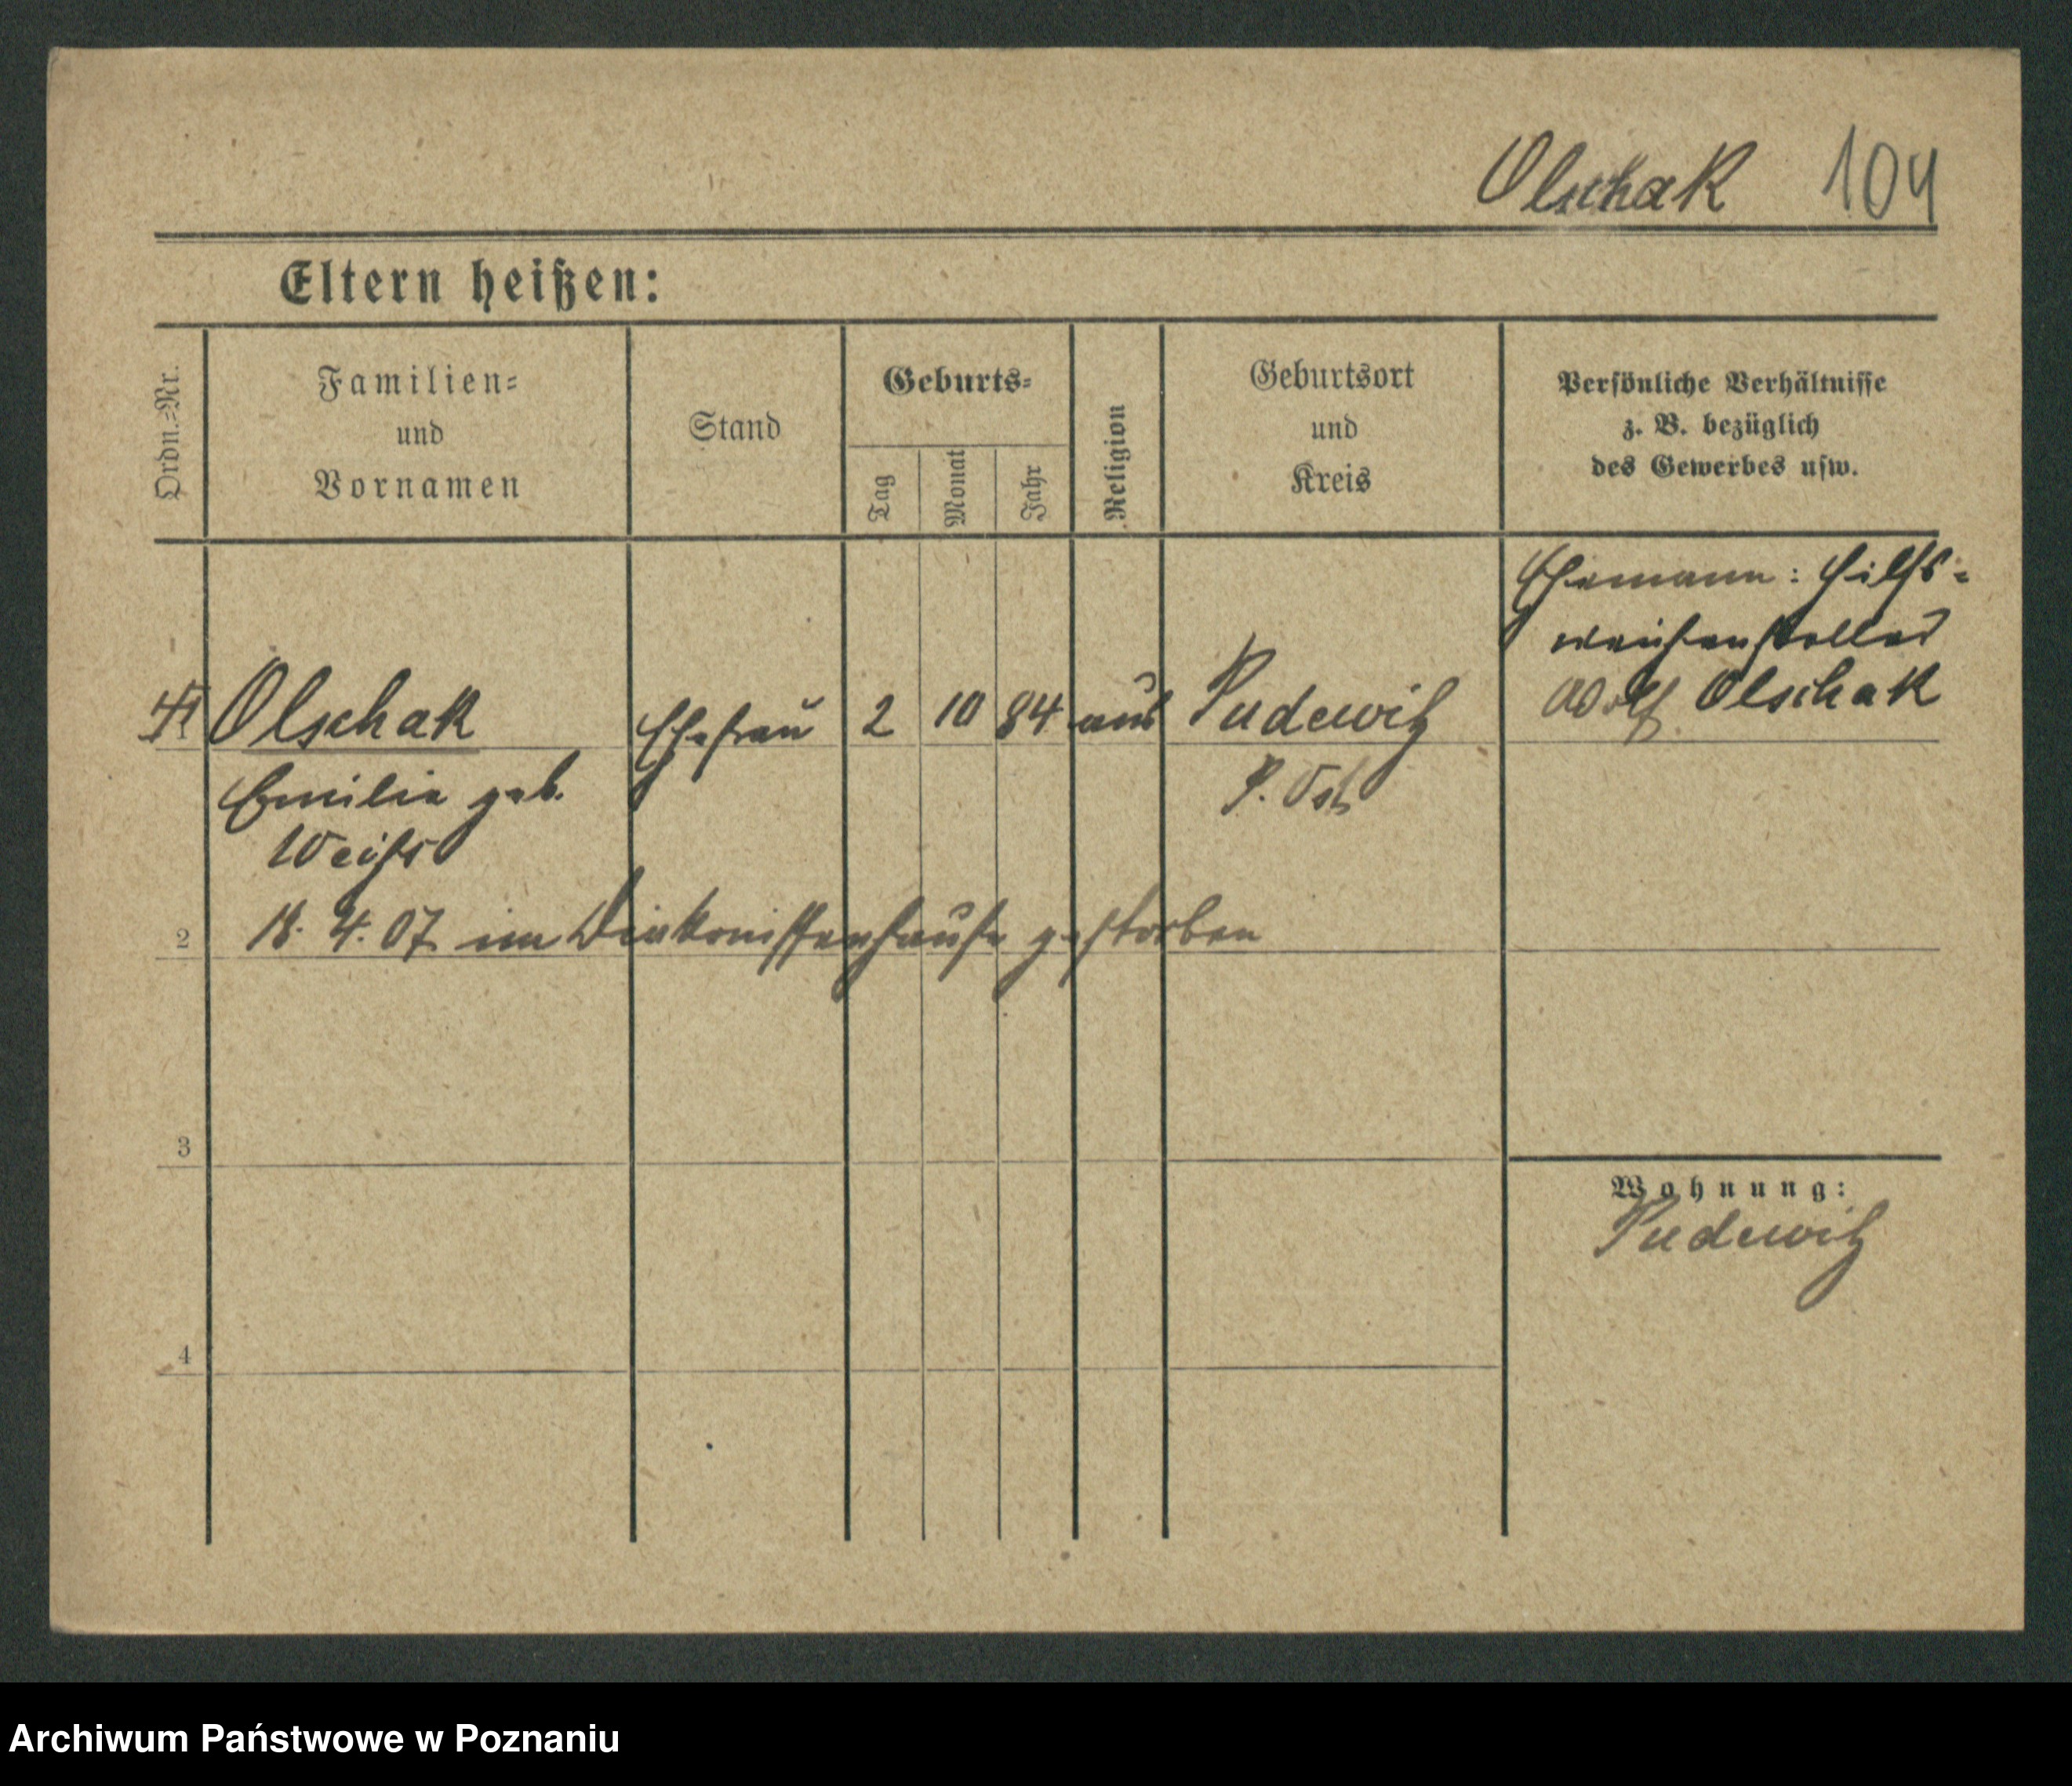 Olschak 104
Eltern heißen:
Ordn.=Nr.
Familien=
und
Vornamen
Stand
Geburts=
Tag
Monat
Jahr
Religion
Geburtsort
und
Kreis
Persönliche Verhältnisse
z. B. bezüglich
des Gewerbes usw.
Ehemann: Hilfs=
weichensteller
Adolf Olschak
Olschak Ehefrau 2 10 84 Pudewitz
Emilie geb. P. Ost
Weiſs
2 18. 4. 07 im Diakonissenhause gestorben
3
Wohnung:
Pudewitz
4
Archiwum Państwowe w Poznaniu